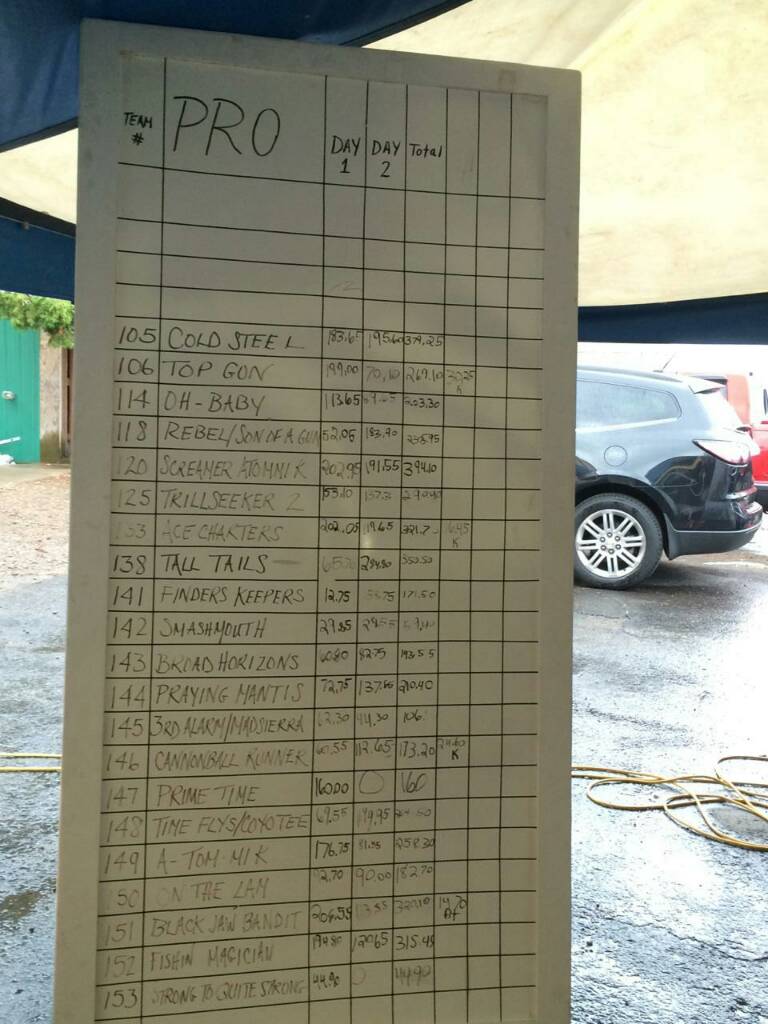 TEAM # PRO DAY 1 DAY 2 Total
105 COLD STEEL 183.65 195.60 379.25
106 TOP GUN 199.00 70.10 269.10 30.25 K
114 OH-BABY 113.65 203.30
118 REBEL/SON OF A GUN 52.05 183.90
120 SCREAMER ATOMNIK 202.95 191.55 394.10
125 TRILLSEEKER 2 153.10
133 ACE CHARTERS 202.05 119.65 K
138 TALL TAILS 284.80 350.50
141 FINDERS KEEPERS 12.75
142 SMASHMOUTH 29.85
143 BROAD HORIZONS 60.80 82.75
144 PRAYING MANTIS 72.75 210.40
145 3RD ALARM/MADSIERRA 62.30 44.30
146 CANNONBALL RUNNER 60.55 112.65 173.20 K
147 PRIME TIME 160.00 0 160
148 TIME FLYS/COYOTEE 69.55
149 A-TOM-MIK 176.75 81.55 258.30
ON THE LAM 92.70 90.00 182.70
151 BLACK JAW BANDIT 206.55 113.55 320.10
152 FISHIN MAGICIAN 194.80 120.65 315.45
153 STRONG TO QUITE STRONG 44.90 0 44.90